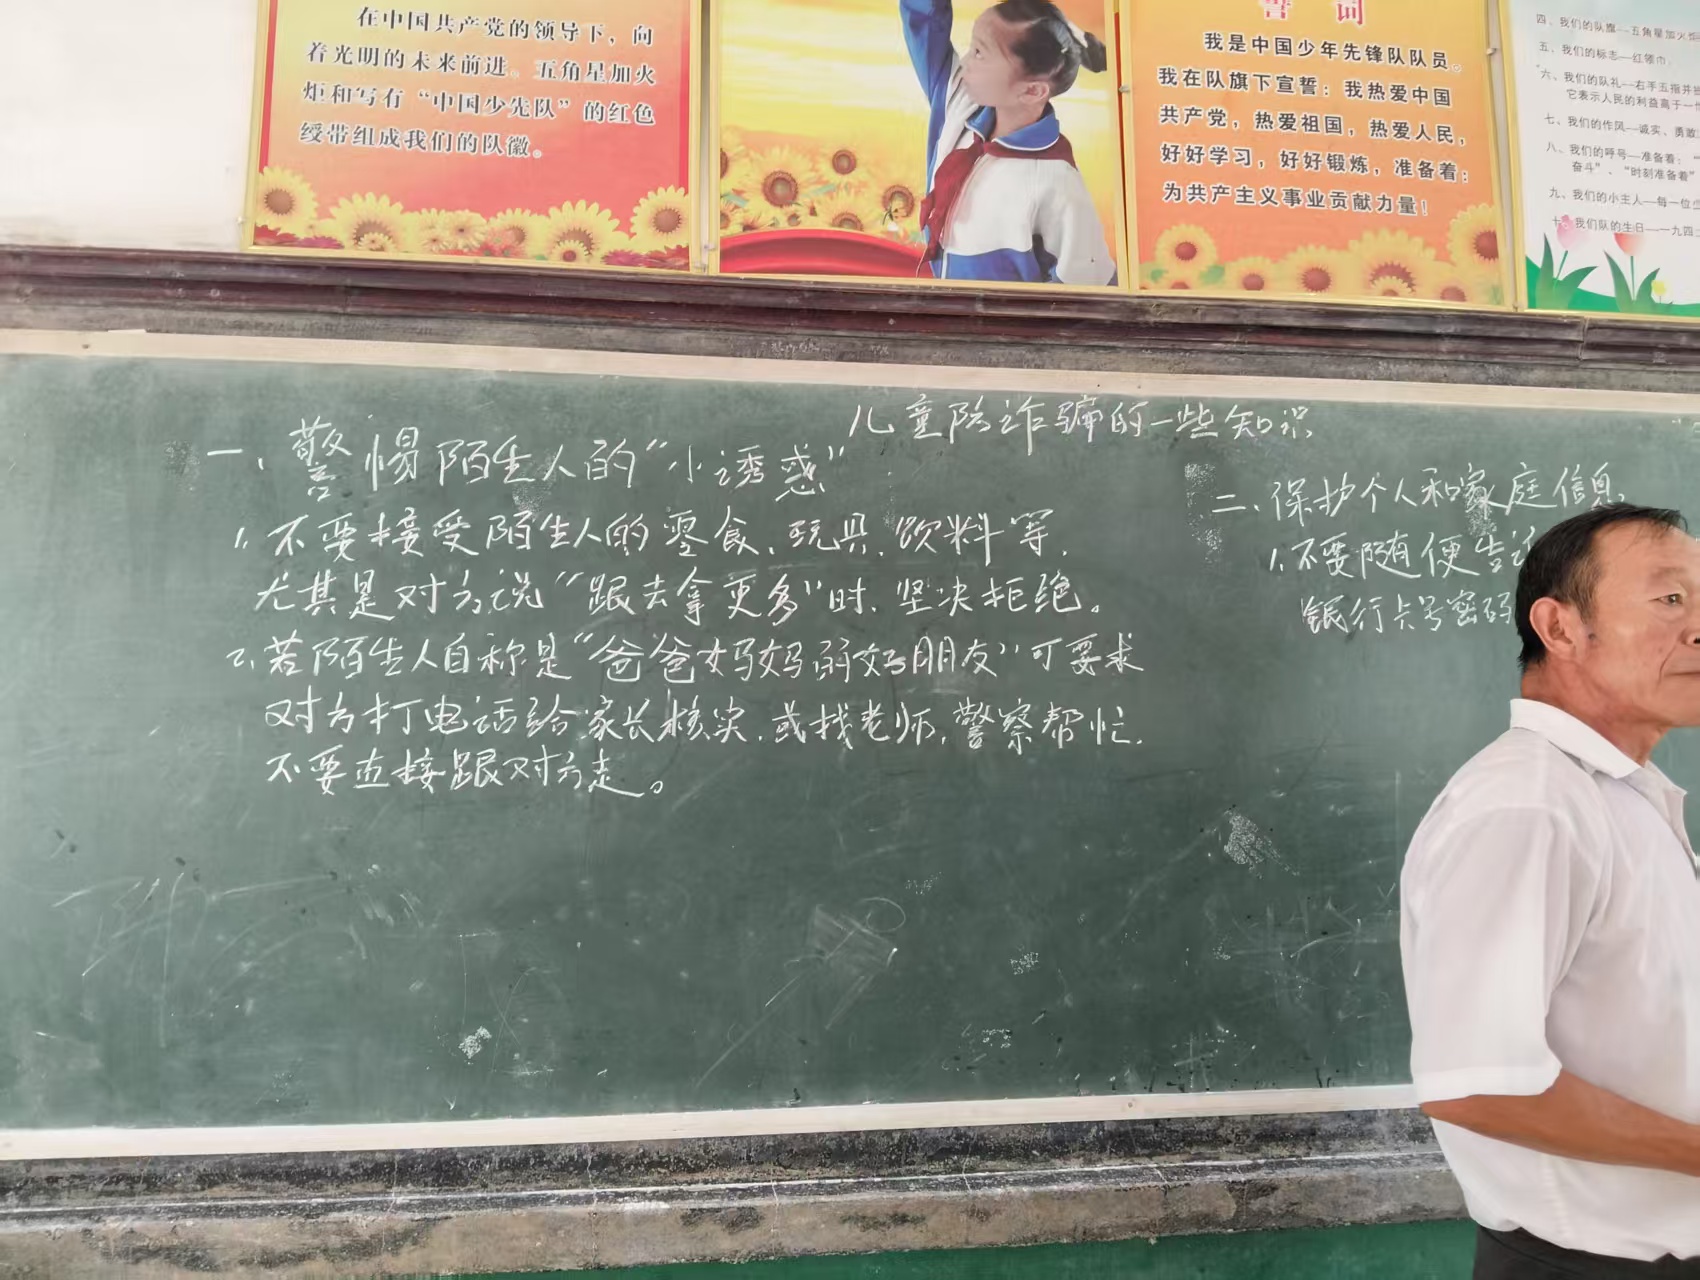 在中国共产党的领导下，向
着光明的未来前进。五角星加火
炬和写有“中国少先队”的红色
绶带组成我们的队徽。
誓词
我是中国少年先锋队队员。
我在队旗下宣誓：我热爱中国
共产党，热爱祖国，热爱人民，
好好学习，好好锻炼，准备着：
为共产主义事业贡献力量！
四、我们的队旗—五角星加火炬
五、我们的标志—红领巾
六、我们的队礼—右手五指并拢
它表示人民的利益高于一
七、我们的作风—诚实、勇敢
八、我们的呼号—准备着：“
奋斗”、“时刻准备着”
九、我们的小主人—每一位
十、我们队的生日—一九四
儿童防诈骗的一些知识
一、警惕陌生人的“小诱惑”
1、不要接受陌生人的零食、玩具、饮料等，
尤其是对方说“跟去拿更多”时，坚决拒绝。
2、若陌生人自称是“爸爸妈妈的好朋友”可要求
对方打电话给家长核实，或找老师，警察帮忙，
不要直接跟对方走。
二、保护个人和家庭信息
1、不要随便告诉
银行卡号密码